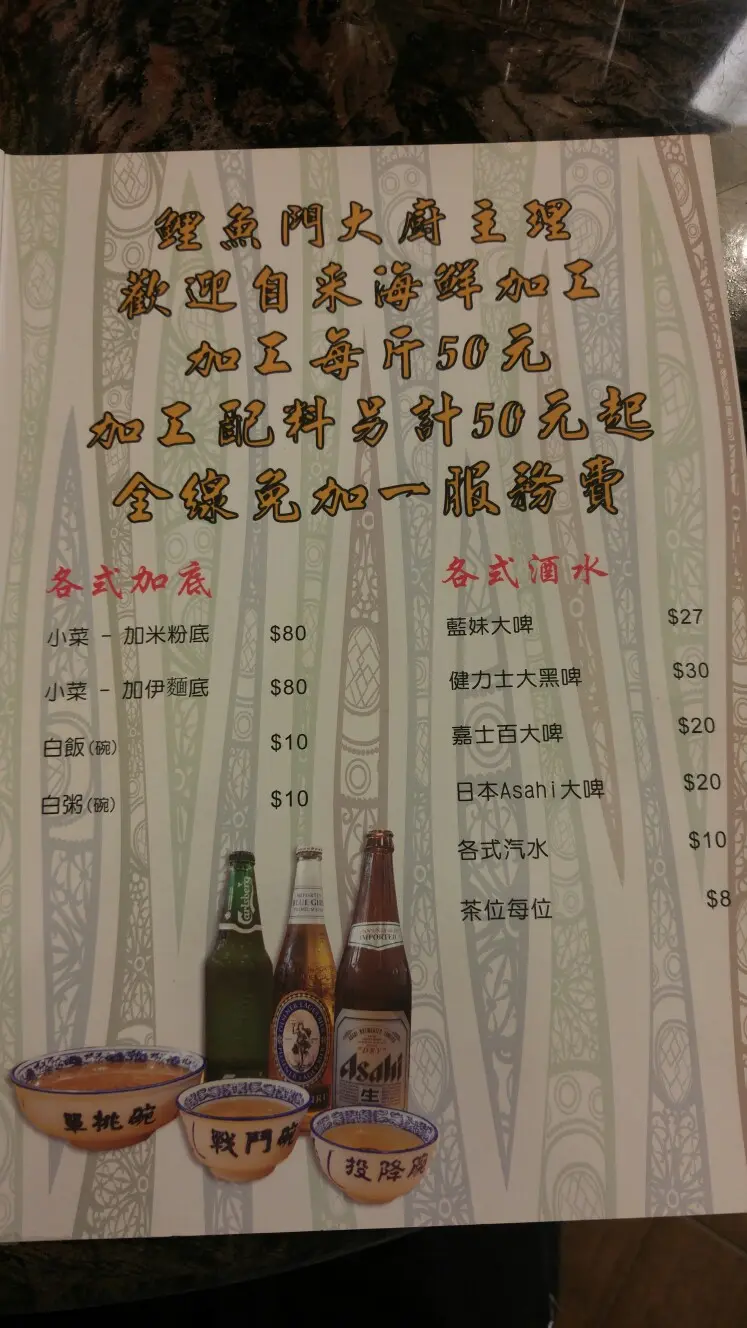 鯉魚門大廚主理
歡迎自来海鮮加工
加工每斤50元
加工配料另計50元起
全線免加一服務費
各式加底
小菜 - 加米粉底 $80
小菜 - 加伊麵底 $80
白飯(碗) $10
白粥(碗) $10
各式酒水
藍妹大啤 $27
健力士大黑啤 $30
嘉士百大啤 $20
日本Asahi大啤 $20
各式汽水 $10
茶位每位 $8
Carlsberg
IMPORTED
Asahi
生
單挑碗
戰鬥碗
投降碗